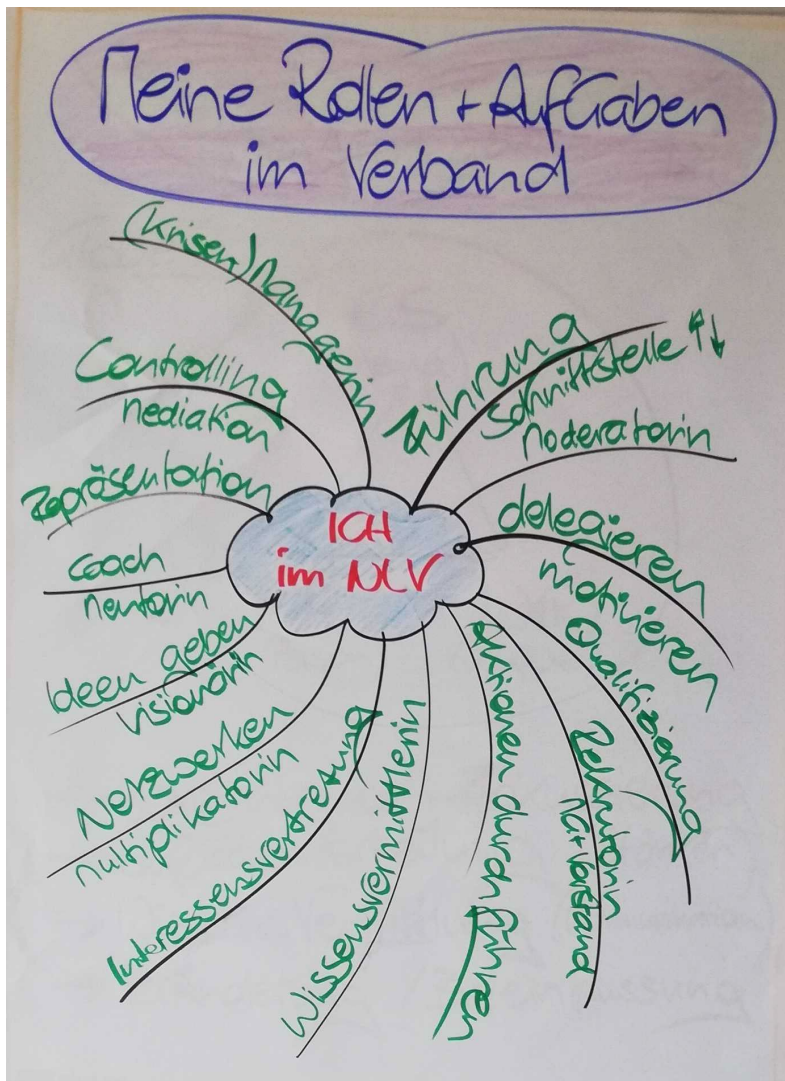 Meine Rollen + Aufgaben
im Verband
(Krisen)Managerin
Controlling
Mediation
Repräsentation
Coach
Mentorin
Ideen geben
Visionärin
Netzwerken
Multiplikatorin
Interessensvertretung
Wissensvermittlerin
Aktionen durchführen
Rekrutorin
Näit Vorstand
Qualifizierung
delegieren
motivieren
Moderatorin
Führung
Schnittstelle ↑↓
ICH
im NLV